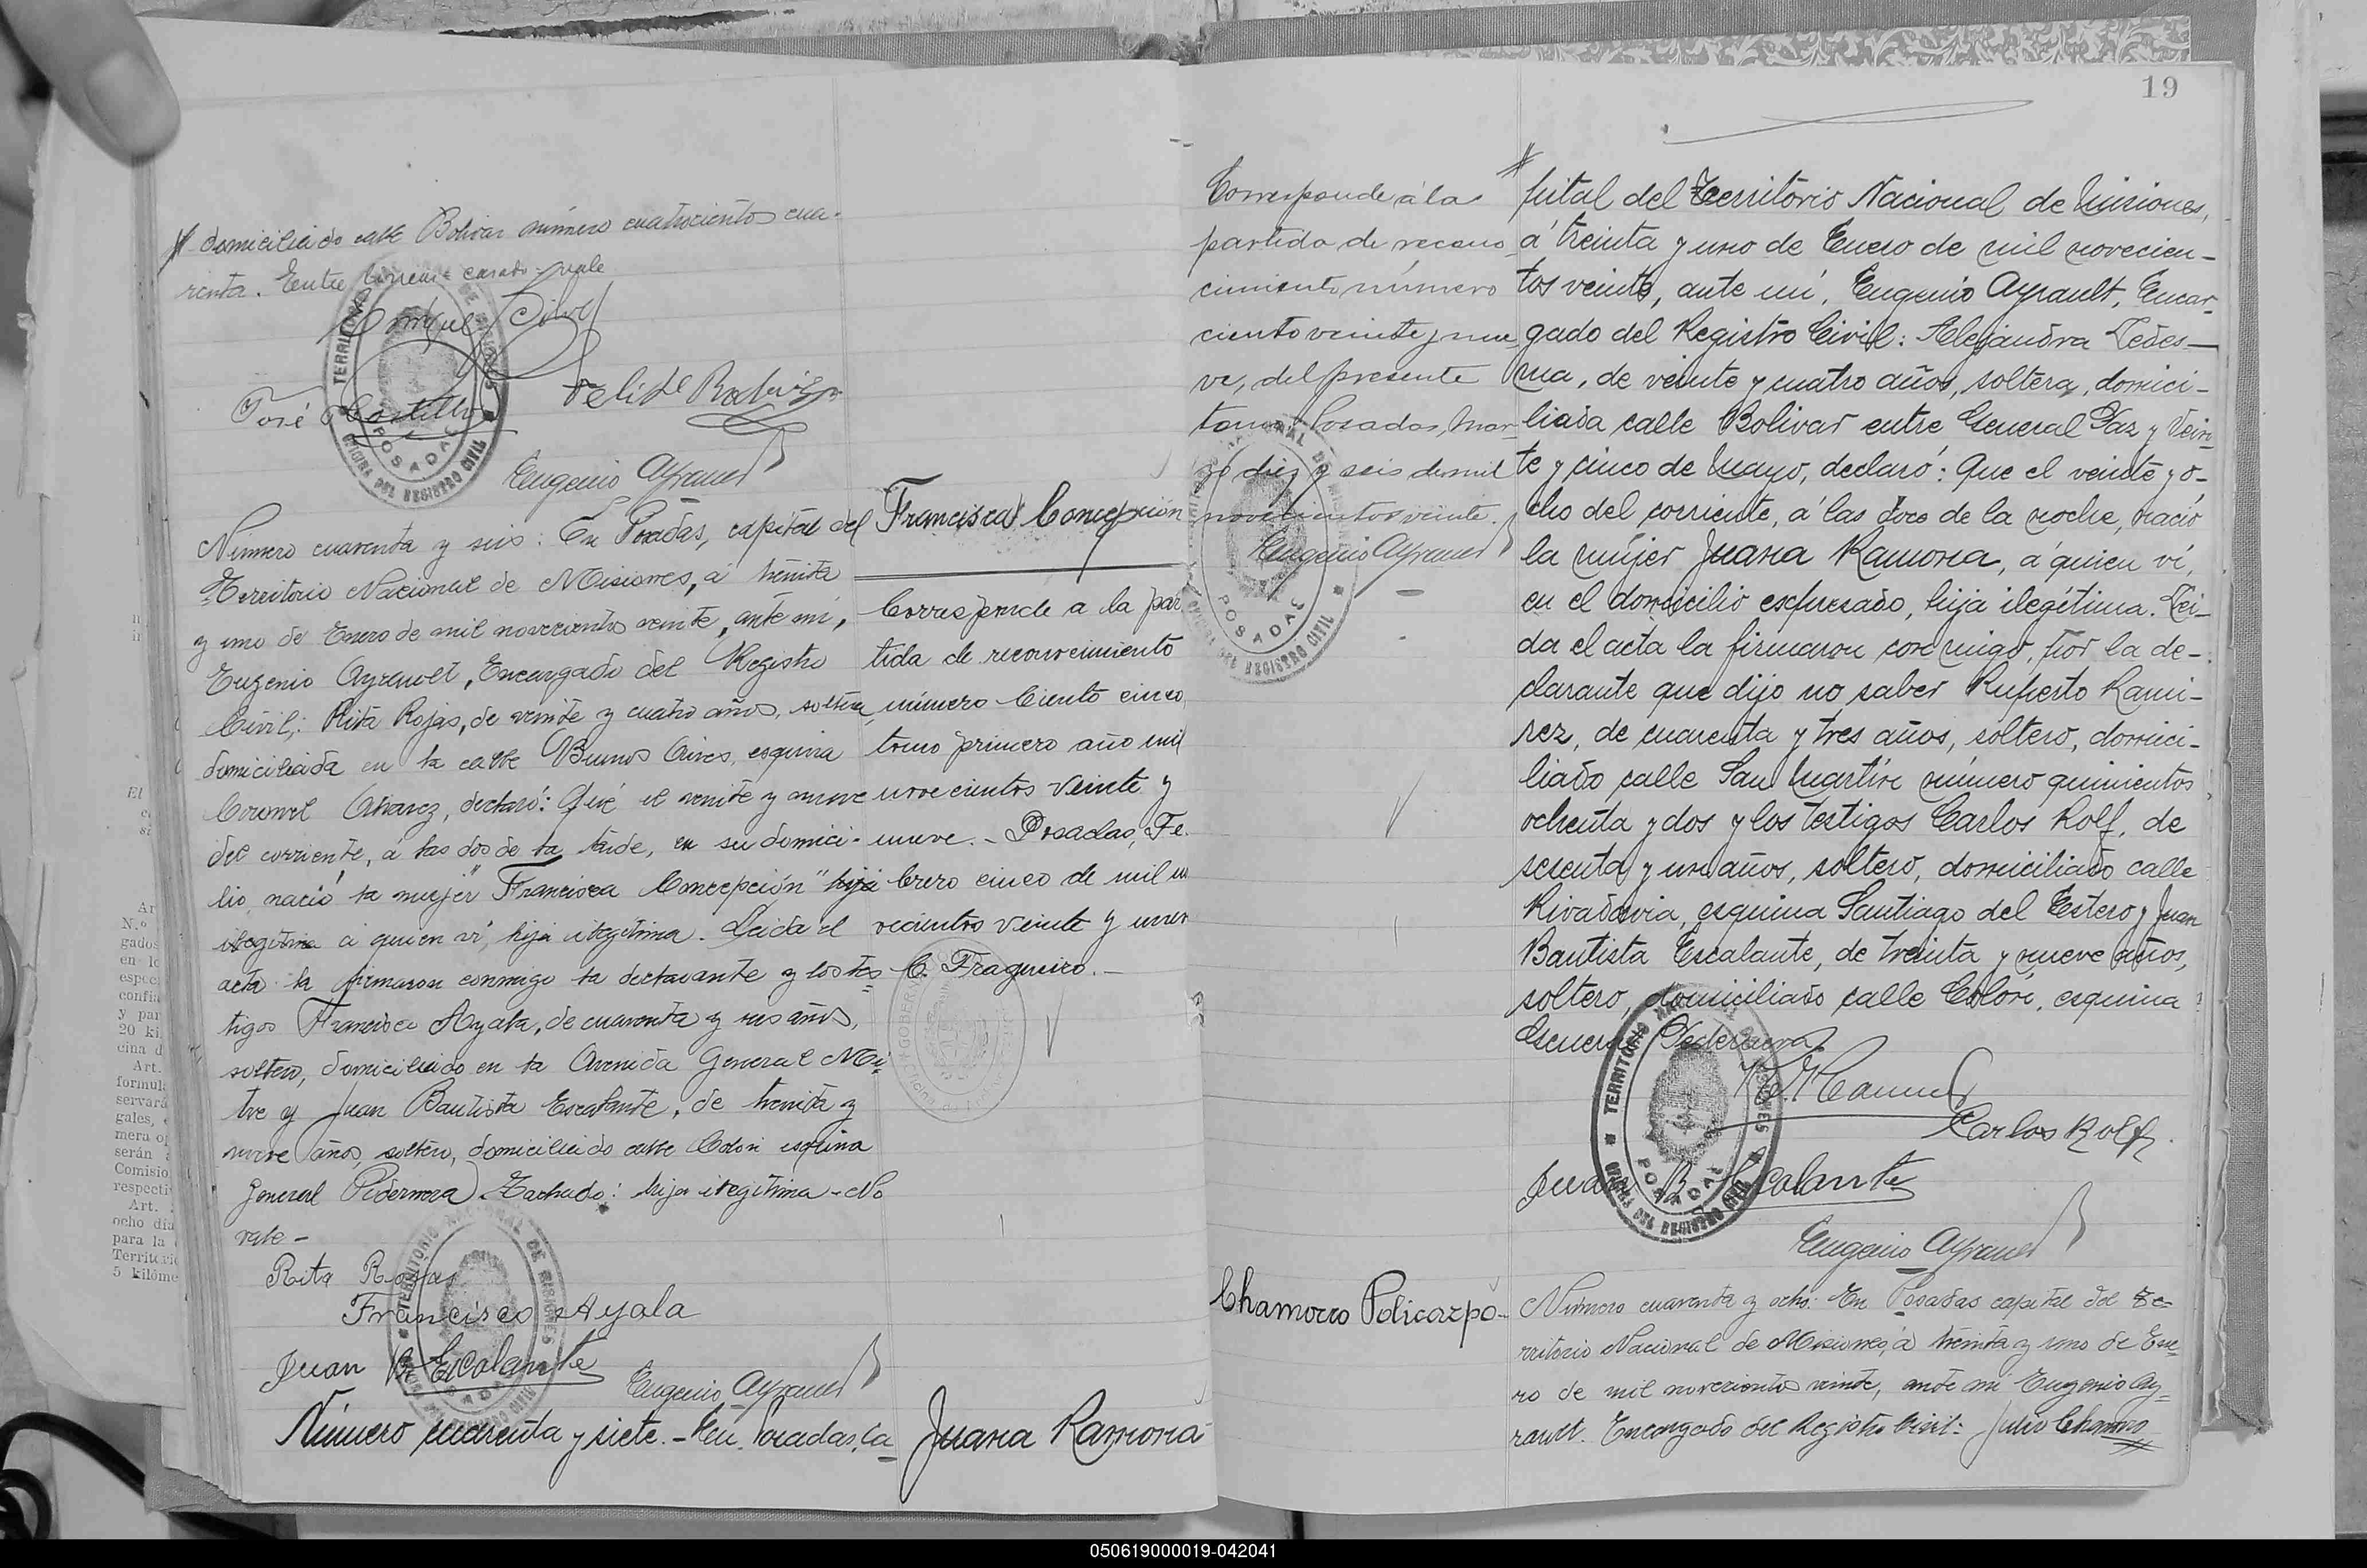 # domiciliado calle Bolivar número cuatrocientos cua-
renta. Entre lineas: casado - vale
José Castillo
Eugenio Ayrault
Número cuarenta y seis: En Posadas, capital del
Territorio Nacional de Misiones, á treinta
y uno de Enero de mil novecientos veinte, ante mí,
Eugenio Ayrault, Encargado del Registro
Civil: Rita Rojas, de veinte y cuatro años, soltera,
domiciliada en la calle Buenos Aires, esquina
Coronel Alvarez, declaró: Qué el veinte y nueve
del corriente, á las dos de la tarde, en su domici-
lio, nació la mujer "Francisca Concepción" hija
ilegitima á quien ví, hija ilegitima. Leida el
acta la firmaron conmigo la declarante y los tes-
tigos Francisco Ayala, de cuarenta y seis años,
soltero, domiciliado en la Avenida General Mi-
tre y Juan Bautista Escalante, de treinta y
nueve años, soltero, domiciliado calle Colon esquina
General Pedernera. Tachado: hija ilegitima - No
vale -
Rita Rojas
Francisco Ayala
Juan B. Escalante
Eugenio Ayrault
Número cuarenta y siete. - En Posadas, ca
Francisca Concepción
Corresponde a la par
tida de reconocimiento
número Ciento cinco,
tomo primero año mil
novecientos veinte y
nueve. - Posadas, Fe-
brero cinco de mil no
vecientos veinte y nueve
C. Fragueiro. -
Juana Ramona
TERRITORIO NACIONAL DE MISIONES
POSADAS
OFICINA DEL REGISTRO CIVIL
19
Corresponde á la
partida de recono
cimiento número
ciento veinte y nue
ve, del presente
tomo. Posadas, Mar-
zo diez y seis de mil
novecientos veinte.
Eugenio Ayrault
# pital del Territorio Nacional de Misiones,
á treinta y uno de Enero de mil novecien-
tos veinte, ante mí, Eugenio Ayrault, Encar-
gado del Registro Civil: Alejandra Ledes-
ma, de veinte y cuatro años, soltera, domici-
liada calle Bolivar entre General Paz y Vein-
te y cinco de Mayo, declaró: Que el veinte y o-
cho del corriente, á las doce de la noche, nació
la mujer Juana Ramona, á quien ví,
en el domicilio expresado, hija ilegítima. Lei-
da el acta la firmaron conmigo, por la de-
clarante que dijo no saber Ruperto Rami-
rez, de cuarenta y tres años, soltero, domici-
liado calle San Martín número quinientos
ochenta y dos y los testigos Carlos Rolf, de
sesenta y un años, soltero, domiciliado calle
Rivadavia, esquina Santiago del Estero y Juan
Bautista Escalante, de treinta y nueve años,
soltero, domiciliado calle Colon, esquina
General Pedernera.
Carlos Rolf.
Juan B. Escalante
Eugenio Ayrault
TERRITORIO NACIONAL DE MISIONES
POSADAS
OFICINA DEL REGISTRO CIVIL
Chamorro Policarpo -
Número cuarenta y ocho: En Posadas capital del Te-
rritorio Nacional de Misiones, á treinta y uno de Ene-
ro de mil novecientos veinte, ante mí Eugenio Ay-
rault. Encargado del Registro Civil: Julio Chamorro
050619000019-042041